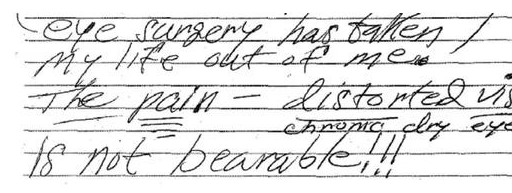 eye surgery has taken /
my life out of me.
The pain - distorted vis
chronic dry eye
is not bearable!!!